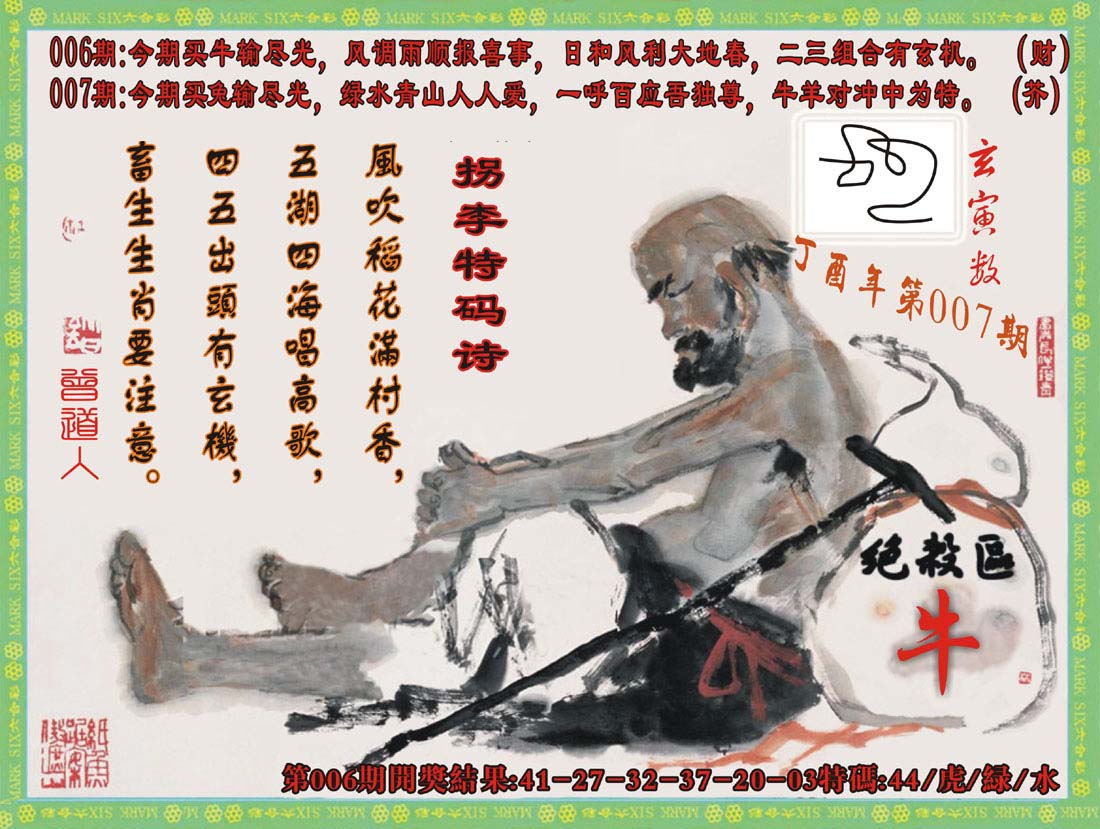 MARK SIX六合彩 MARK SIX六合彩 MARK SIX六合彩 MARK SIX六合彩 MARK SIX六合彩 MARK SIX六合彩
006期:今期买牛输尽光，风调雨顺报喜事，日和风利大地春，二三组合有玄机。（财）
007期:今期买兔输尽光，绿水青山人人爱，一呼百应吾独尊，牛羊对冲中为特。（芥）
玄寅数
丁酉年第007期
拐李特码诗
風吹稻花滿村香，
五湖四海唱高歌，
四五出頭有玄機，
畜生生肖要注意。
曾道人
绝殺區
牛
第006期開獎結果:41-27-32-37-20-03特碼:44/虎/緑/水